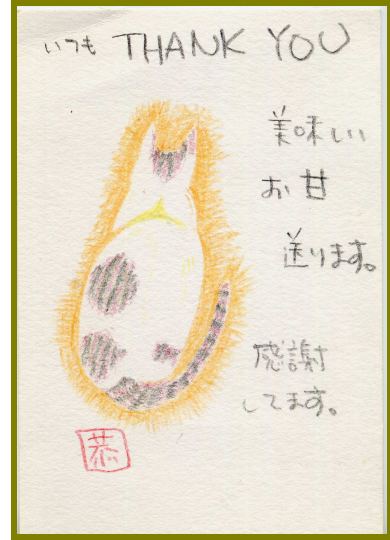 いつも THANK YOU
美味しい
お甘
送ります。
感謝
してます。
恭